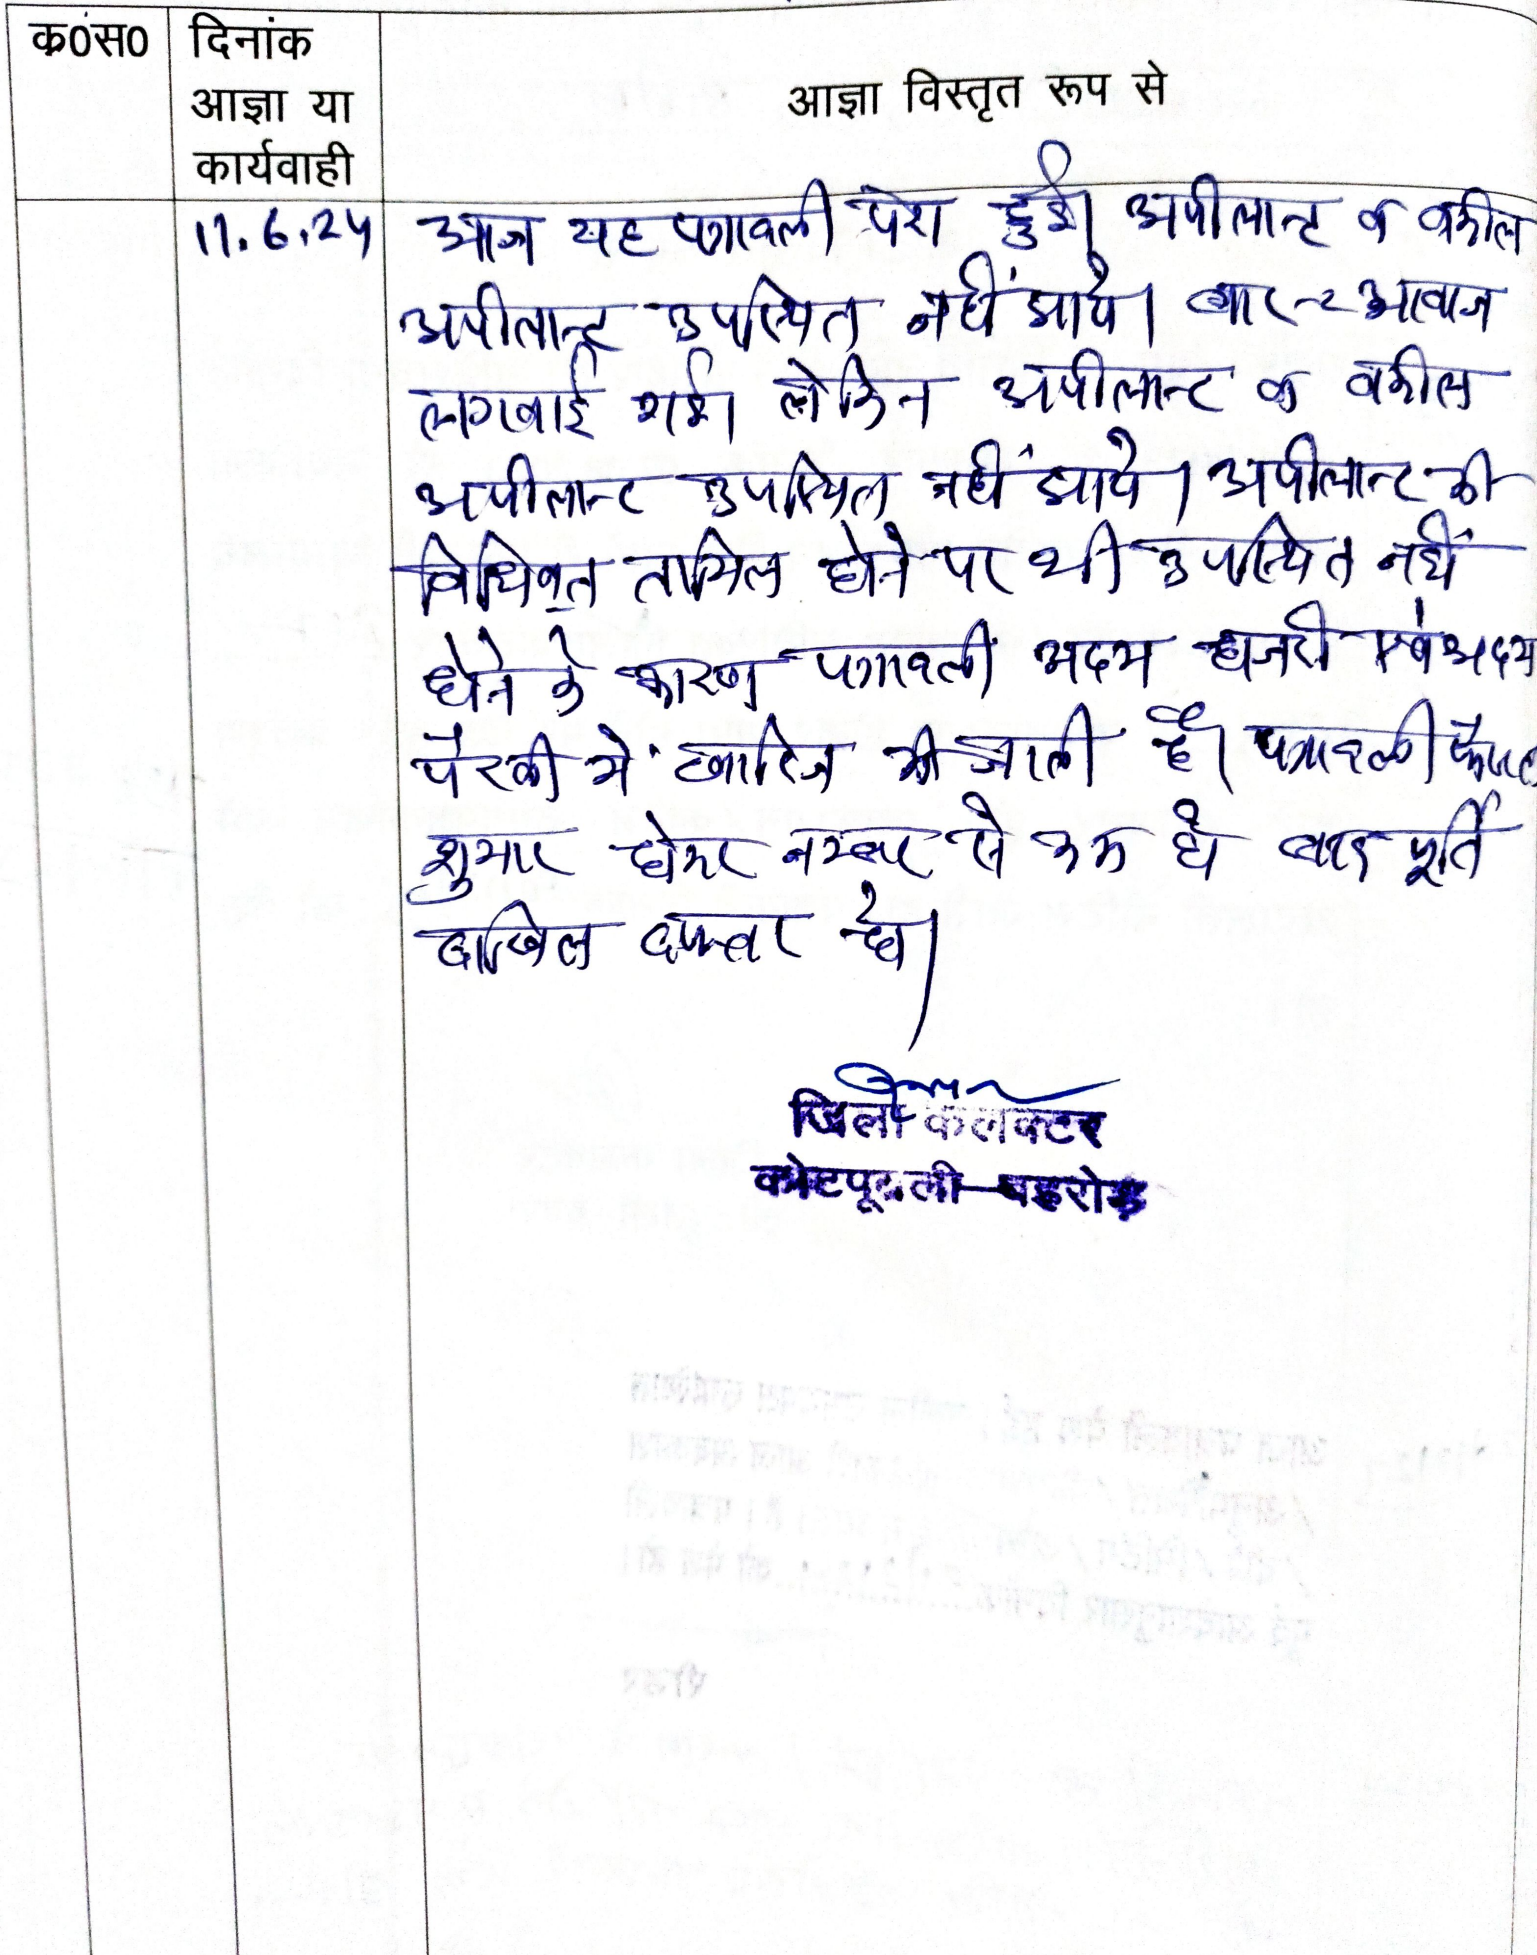 क०स० दिनांक
आज्ञा या
कार्यवाही
आज्ञा विस्तृत रूप से
11.6.24 आज यह पत्रावली पेश हुई। अपीलान्ट व वकील
अपीलान्ट उपस्थित नहीं आये। बार-२ आवाज
लगवाई गई। लेकिन अपीलान्ट व वकील
अपीलान्ट उपस्थित नहीं आये। अपीलान्ट की
विधिवत तामिल होने पर भी उपस्थित नहीं
होने के कारण पत्रावली अदम हाजरी एवं अदम
पैरवी में खारिज की जाती है। पत्रावली फैसल
शुमार होकर नम्बर से कम हो बाद पूर्ति
दाखिल दफ्तर हो।
जिला कलक्टर
कोटपूतली-बहरोड़